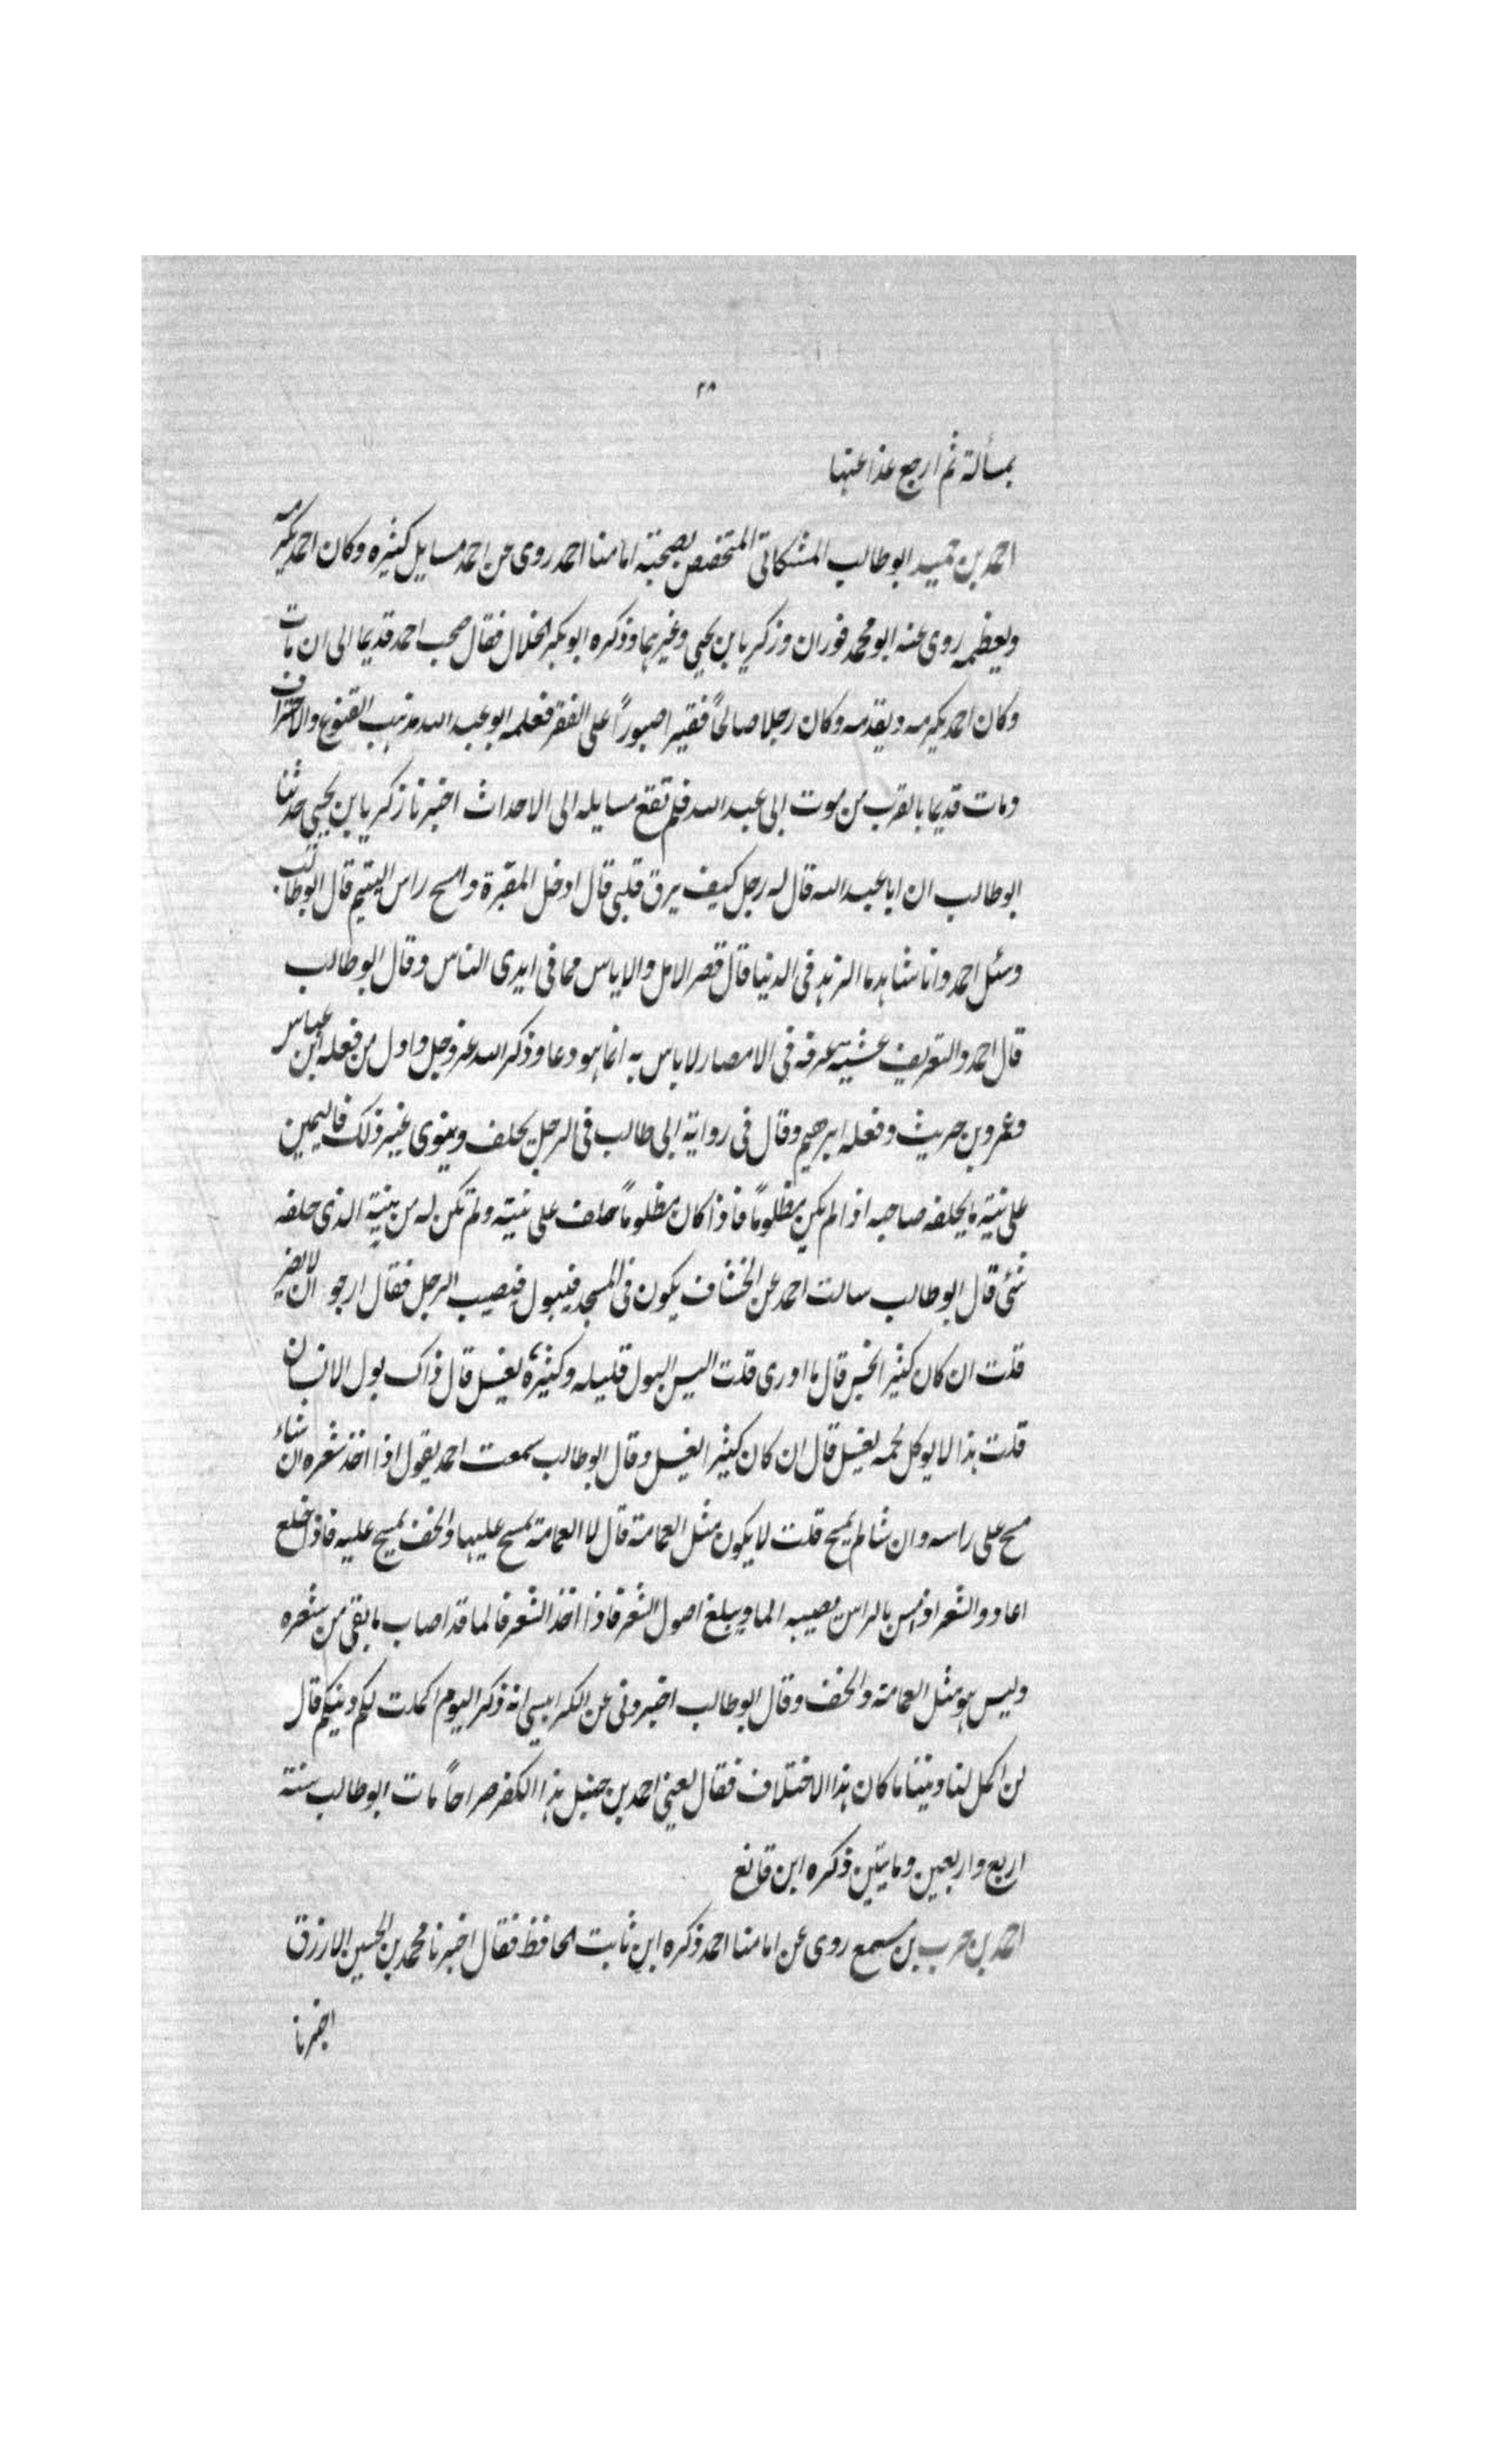 ٣٨
بمسألة ثم ارجع غدا عنها
احمد بن حميد ابو طالب المشكاتي المتخصص بصحبة امامنا احمد روى عن احمد مسايل كثيره وكان احمد يكرمه
ويعظمه روى عنه ابو محمد فوران وزكريا بن يحيى وغيرهما وذكره ابو بكر الخلال فقال صحب احمد قديما الى ان مات
وكان احمد يكرمه ويقدمه وكان رجلا صالحاً فقيرا صبوراً على الفقر فعلمه ابو عبد الله مذهب القنوع والاحتراف
ومات قديما بالقرب من موت ابى عبد الله فلم تقع مسايله الى الاحداث اخبرنا زكريا بن يحيى حدثنا
ابو طالب ان ابا عبد الله قال له رجل كيف يرق قلبي قال ادخل المقبرة وامسح راس اليتيم قال ابو طالب
وسئل احمد وانا شاهد ما الزهد فى الدنيا قال قصر الامل والاياس مما فى ايدى الناس وقال ابو طالب
قال احمد والتعريف عشية عرفه فى الامصار لا باس به انما هو دعا وذكر الله عز وجل واول من فعله ابن عباس
وعمرو بن حريث وفعله ابرهيم وقال فى رواية ابى طالب فى الرجل يحلف وينوى غير ذلك فاليمين
على نية ما يحلفه صاحبه اذا لم يكن مظلوماً فاذا كان مظلوماً حلف على نيته ولم تكن له من نية الذى حلفه
شئ قال ابو طالب سالت احمد عن الخشاف يكون فى المسجد فيبول فيصيب الرجل فقال ارجو ان لا يضر
قلت ان كان كثير الخبر قال ما ادرى قلت اليس البول قليله وكثيره يغسل قال ذاك بول الانسان
قلت هذا لا يوكل لحمه يغسل قال ان كان كثير الغسل وقال ابو طالب سمعت احمد يقول اذا اخذ شعره ان شاء
مسح على راسه وان شا لم يمسح قلت لا يكون مثل العمامة قال لا العمامة يمسح عليها والخف يمسح عليه فاذا خلع
اعاد والشعر اذ ليس بالراس يصيبه الما ويبلغ اصول الشعر فاذا اخذ الشعر فالما قد اصاب ما بقى من شعره
وليس هو مثل العمامة والخف وقال ابو طالب اخبرونى عن الكرابيسي انه ذكر اليوم اكملت لكم دينكم قال
لن اكمل لنا ديننا ما كان هذا الاختلاف فقال يعنى احمد بن حنبل هذا الكفر صراحاً مات ابو طالب سنة
اربع واربعين ومايتين ذكره ابن قانع
احمد بن حرب بن مسمع روى عن امامنا احمد ذكره ابن ثابت الحافظ فقال اخبرنا محمد بن الحسين الازرق
اخبرنا